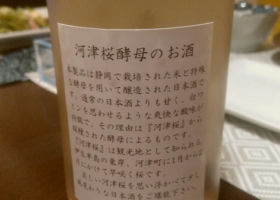 河津桜酵母のお酒
本製品は静岡で栽培された米と特殊
な酵母を用いて醸造された日本酒で
す。通常の日本酒よりも甘く、白ワ
インを思わせるような爽快な酸味が
特徴で、その理由は『河津桜』から
採種された酵母によるものです。
『河津桜』は観光地として知られる
伊豆半島の東岸、河津町に1月から2
月にかけて早咲く桜です。
美しい河津桜を思い浮かべて少し
風変わりな日本酒をご堪能下さい。